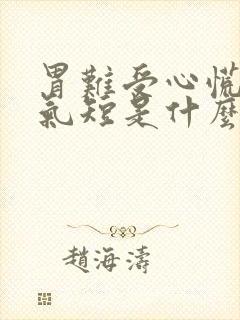 胃難受心慌
氣短是什麼
趙海濤